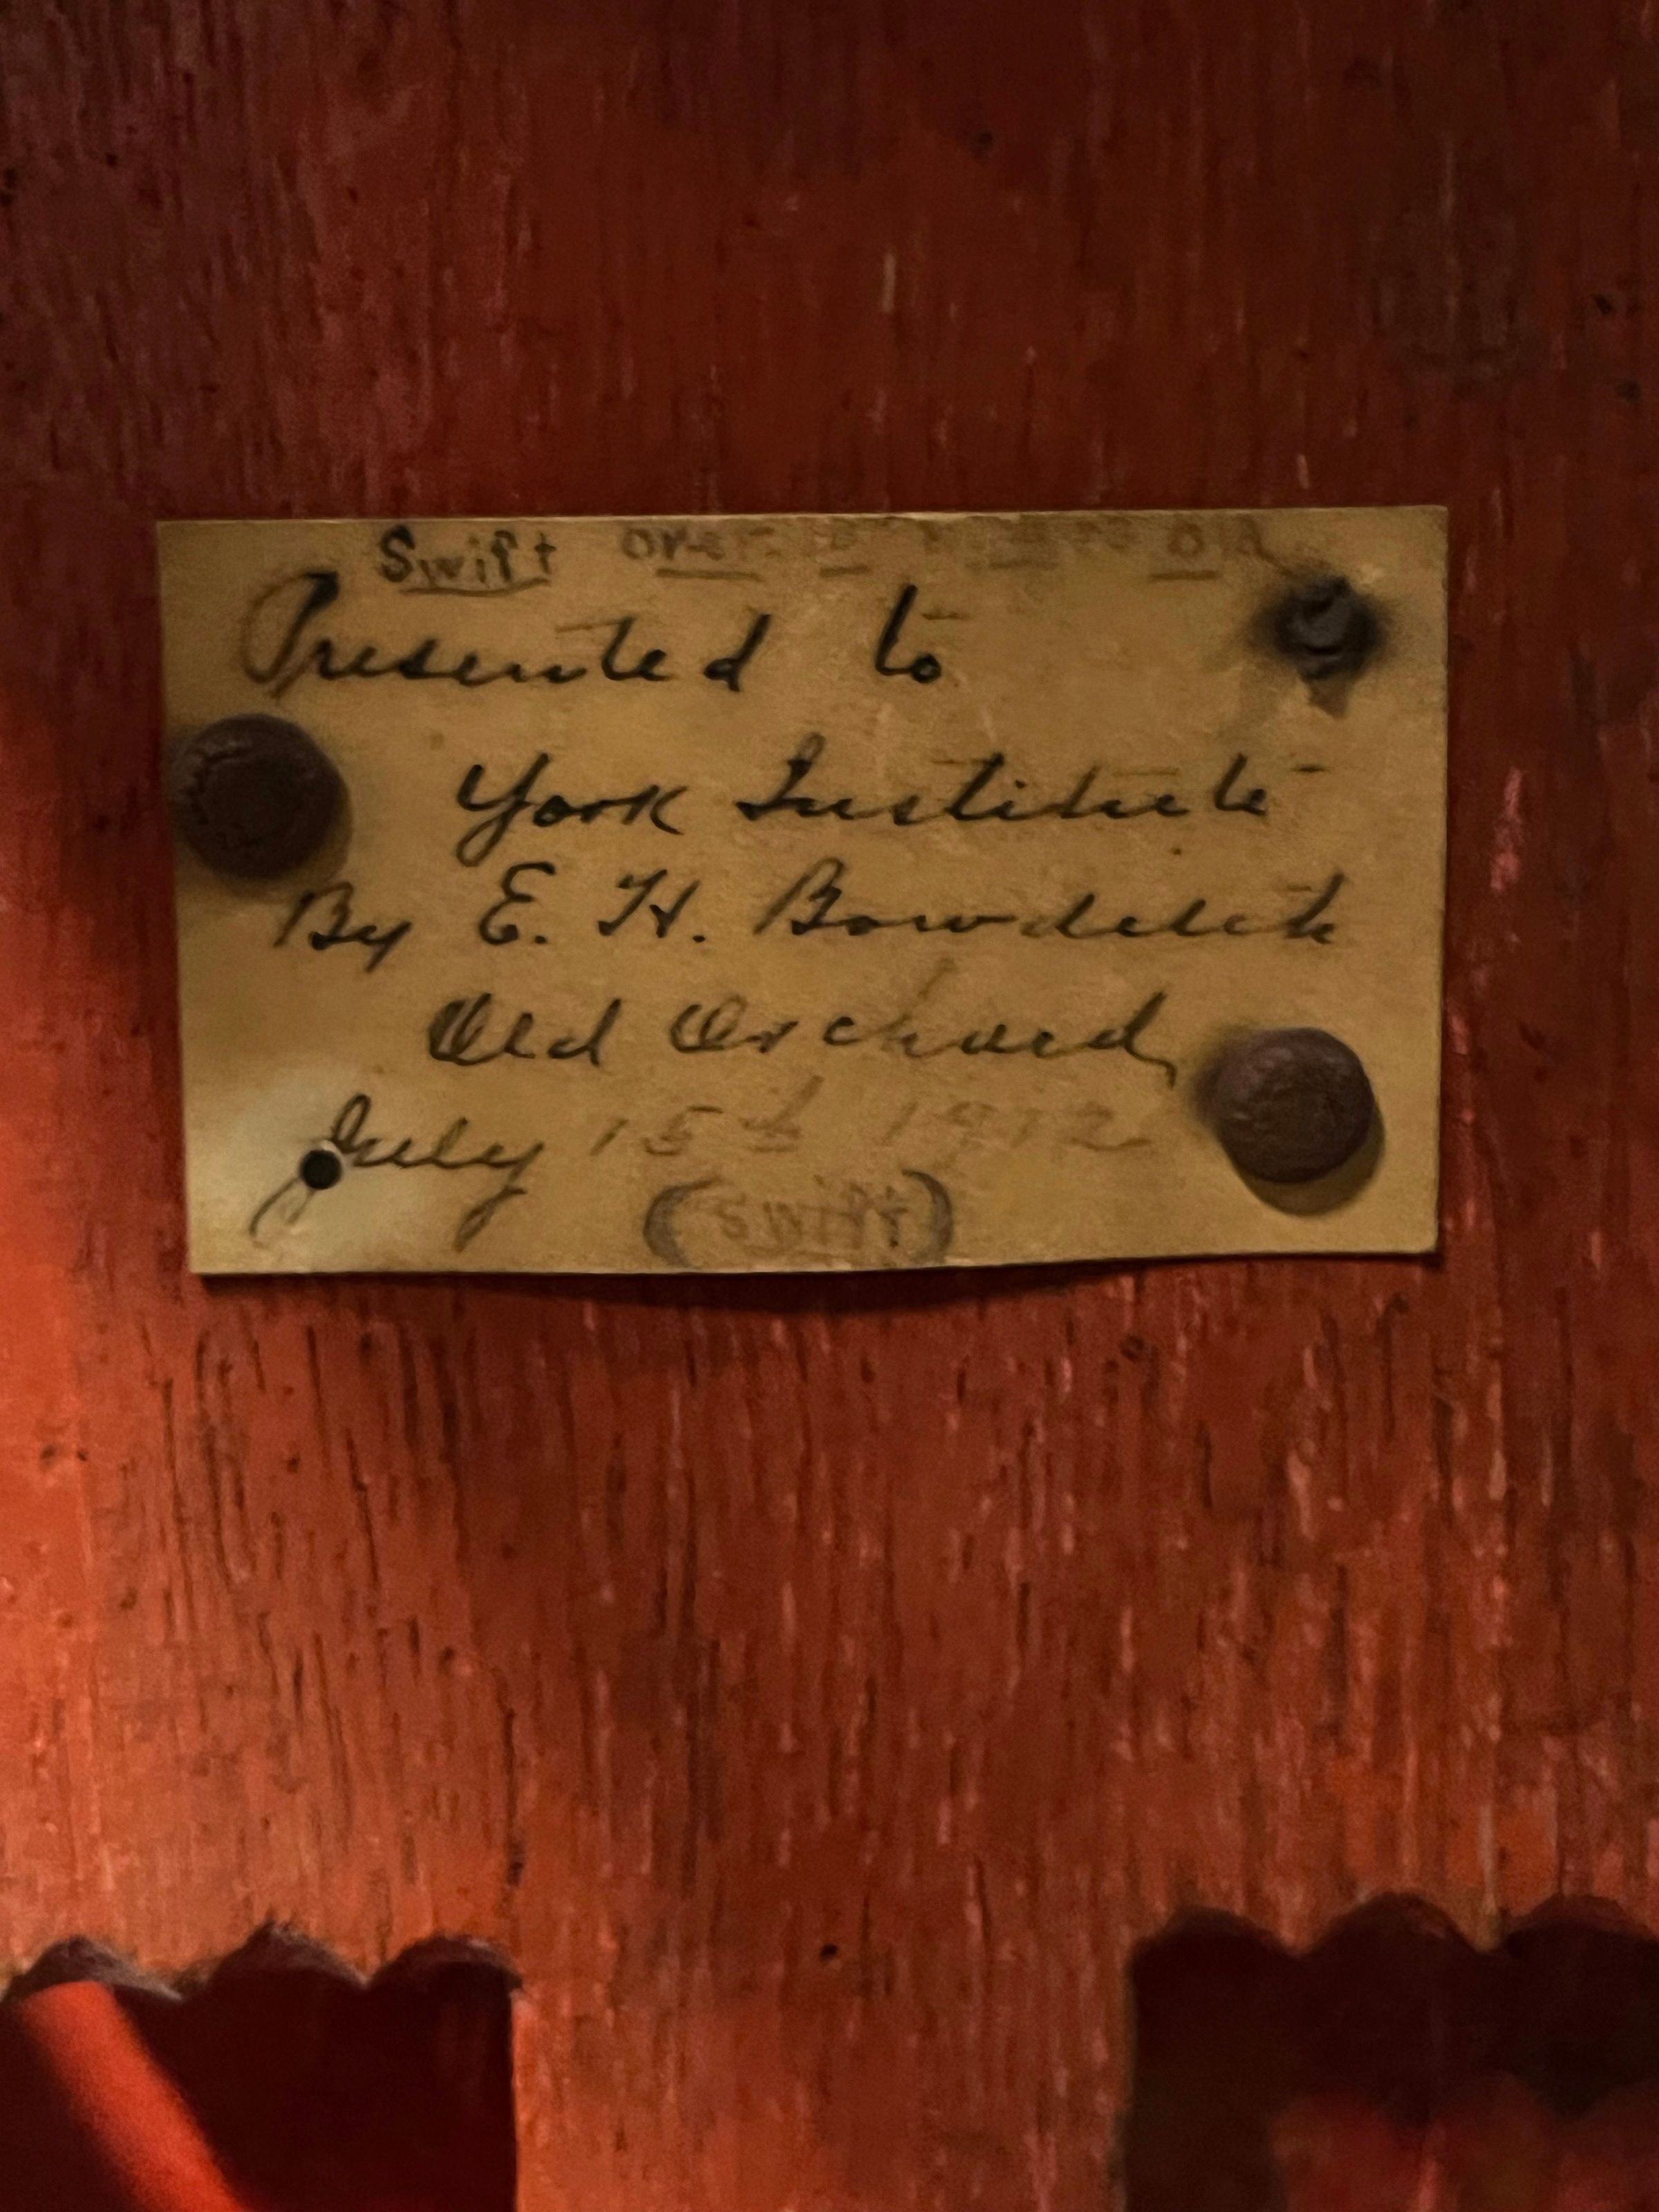 Swift over old
Presented to
York Institute
By E. H. Bowditch
Old Orchard,
July 15th 1912
(Swift)